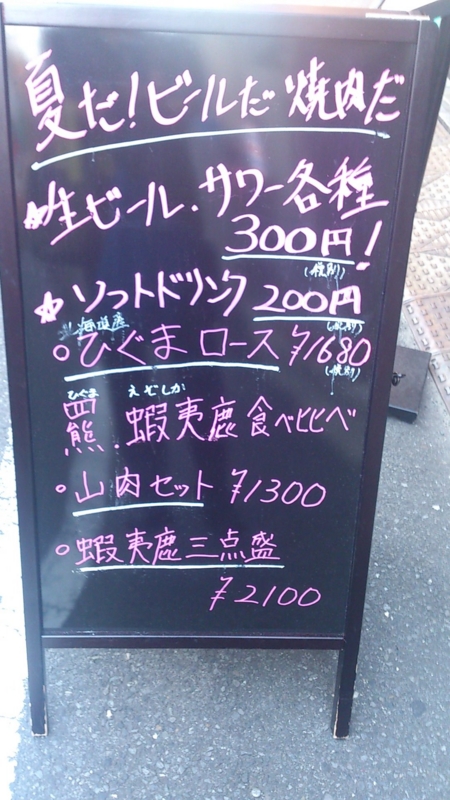 夏だ！ビールだ焼肉だ
☆生ビール．サワー各種
300円！
(税別)
☆ソフトドリンク 200円
(税別)
北海道産
○ひぐまロース ¥1680
(税別)
ひぐま えぞしか
羆．蝦夷鹿食べ比べ
・山肉セット ¥1300
○蝦夷鹿三点盛
¥2100